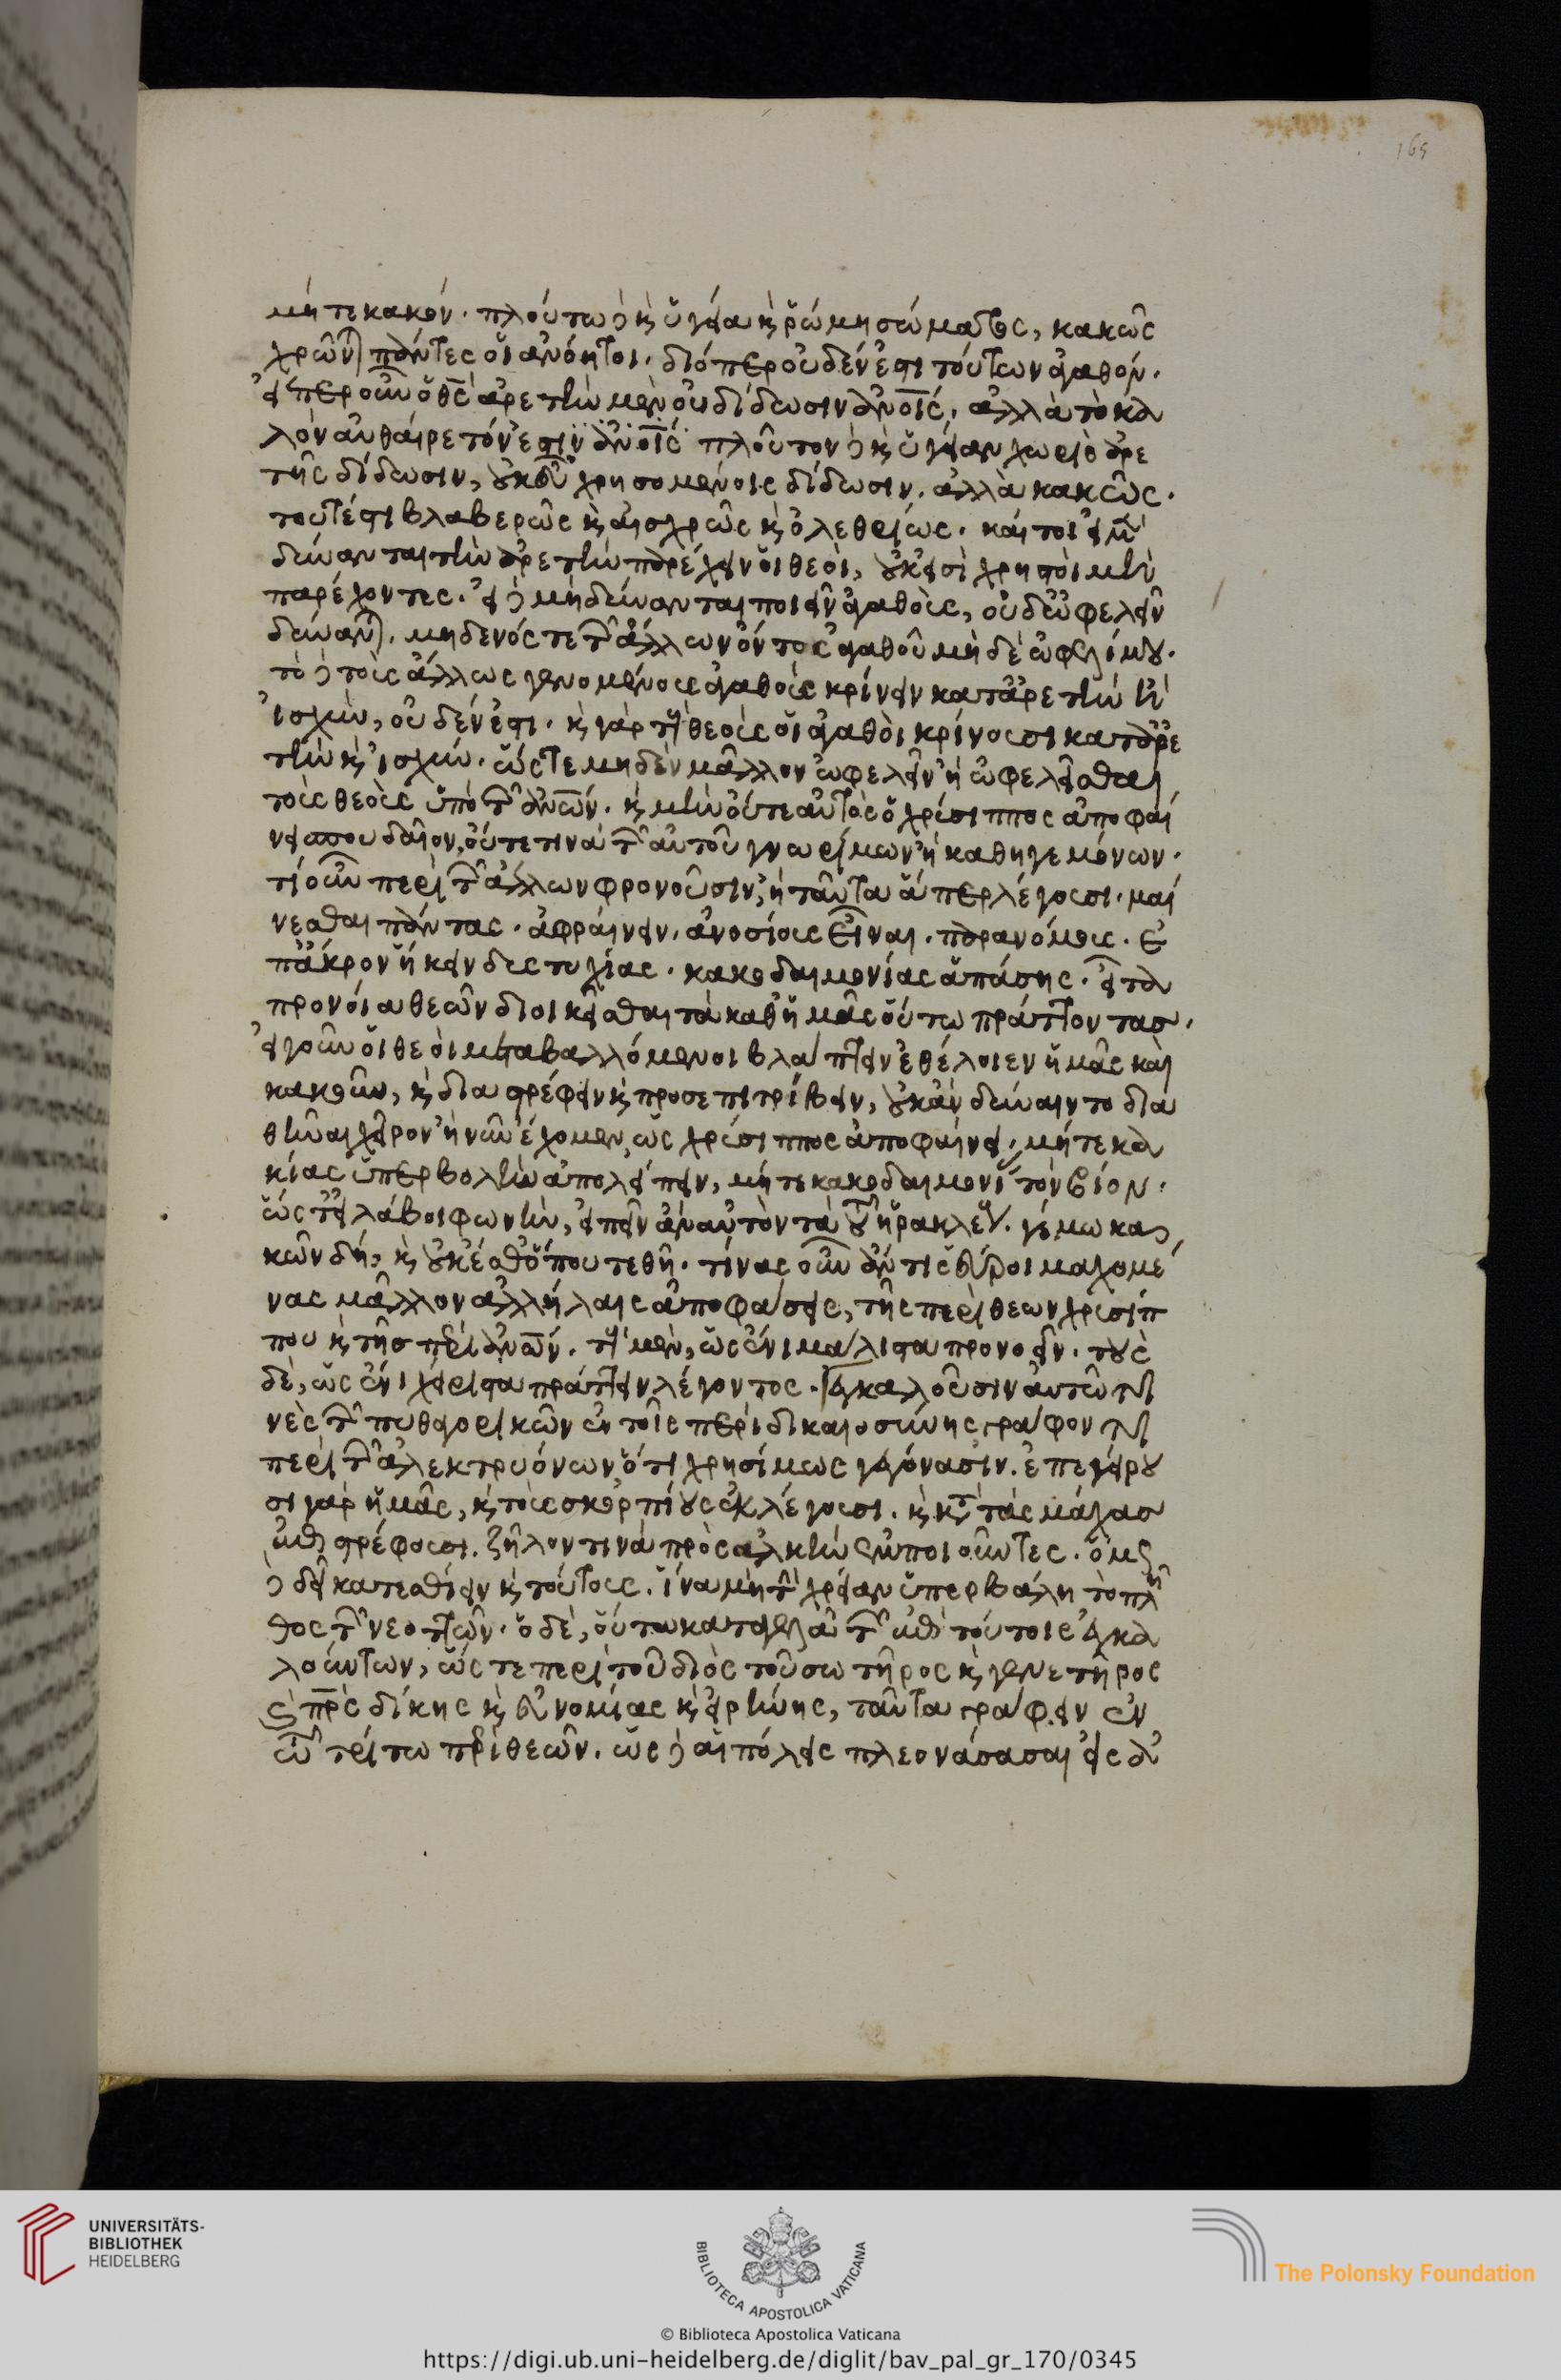 μήτε κακόν. πλούτω δὲ καὶ ὑγεία καὶ ῥώμη σώματος, κακῶς
χρῶνται πάντες οἱ ἀνόητοι. διόπερ οὐδέν ἐστι τούτων ἀγαθόν.
εἴπερ οὖν ὁ θεὸς ἀρετὴν μὲν οὐ δίδωσιν ἀνοις, ἀλλὰ τὸ κα
λὸν αὐθαίρετόν ἐστιν ἀνοις πλοῦτον δὲ καὶ ὑγείαν χωρὶς ἀρε
τῆς δίδωσιν, οὐκ εὖ χρησομένοις δίδωσιν. ἀλλὰ κακῶς.
τουτέστι βλαβερῶς καὶ αἰσχρῶς καὶ ὀλεθρίως. καίτοι εἰ μὲν
δύνανται τὴν ἀρετὴν παρέχειν οἱ θεοὶ, οὐκ εἰσὶ χρηστοὶ μὴ
παρέχοντες. εἰ δὲ μὴ δύνανται ποιεῖν ἀγαθοὺς, οὐδ' ὠφελεῖν
δύνανται. μηδενός τε τῶν ἄλλων ὄντος ἀγαθοῦ μηδὲ ὠφελίμου.
τὸ δὲ τοὺς ἄλλως γενομένους ἀγαθοὺς κρίνειν κατ' ἀρετὴν ἢ
ἰσχὺν, οὐδέν ἐστι. καὶ γὰρ τοὺς θεοὺς οἱ ἀγαθοὶ κρίνουσι κατ' ἀρε
τὴν καὶ ἰσχύν. ὥστε μηδὲν μᾶλλον ὠφελεῖν ἢ ὠφελεῖσθαι
τοὺς θεοὺς ὑπὸ τῶν ἀνων. καὶ μὴν οὔτε αὑτὸς ὁ χρύσιππος ἀποφαί
νει σπουδαῖον, οὔτε τινὰ τῶν αὑτοῦ γνωρίμων ἢ καθηγεμόνων.
τί οὖν περὶ τῶν ἄλλων φρονοῦσιν, ἢ ταῦτα ἅπερ λέγουσι. μαί
νεσθαι πάντας. ἀφραίνειν. ἀνοσίους εἶναι. παρανόμους. ἐ
π' ἄκρον ἥκειν δυστυχίας. κακοδαιμονίας ἁπάσης. εἶτα
προνοία θεῶν διοικεῖσθαι τὰ καθ' ἡμᾶς οὕτω πράττοντας.
εἰ γοῦν οἱ θεοὶ μεταβαλλόμενοι βλάπτειν ἐθέλοιεν ἡμᾶς καὶ
κακοῦν, καὶ διαστρέφειν καὶ προσεπιτρίβειν, οὐκ ἂν δύναιντο δια
θεῖναι χεῖρον ἢ νῦν ἔχομεν, ὡς χρύσιππος ἀποφαίνει, μήτε κα
κίας ὑπερβολὴν ἀπολείπειν, μήτε κακοδαιμονίας τὸν βίον.
ὥστ' εἰ λάβοι φωνὴν, εἰπεῖν ἂν αὐτὸν τὰ τοῦ ἡρακλέους. γέμω κα
κῶν δή, καὶ οὐκ ἔσθ' ὅπου τεθῇ. τίνας οὖν ἄν τις εὕροι μαχομέ
νας μᾶλλον ἀλλήλαις ἀποφάσεις, τῆς περὶ θεων χρυσίπ
που καὶ τῆς περὶ ἀνων. τοὺς μὲν, ὡς ἔνι μάλιστα προνοεῖν. τοὺς
δὲ, ὡς ἔνι χείριστα πράττειν λέγοντος. ἐγκαλοῦσιν αὐτῶ τι
νὲς τῶν πυθαγορικῶν ἐν τοῖς περὶ δικαιοσύνης γράφοντι
περὶ τῶν ἀλεκτρυόνων ὅτι χρησίμως γεγόνασιν. ἐπεγείρου
σι γὰρ ἡμᾶς, καὶ τοὺς σκορπίους ἐκλέγουσι. καὶ κατὰ τὰς μάχας
ἐπιστρέφουσι. ζῆλόν τινα πρὸς ἀλκὴν ἐμποιοῦντες. ὅμως
δὲ δεῖ κατεσθίειν καὶ τούτους. ἵνα μὴ τὴν χρείαν ὑπερβάλη τὸ πλῆ
θος τῶν νεοττῶν. ὁ δὲ, οὕτω καταγελᾶ τῶν ἐπὶ τούτοις ἐγκα
λούντων, ὥστε περὶ τοῦ διὸς τοῦ σωτῆρος καὶ γενετῆρος
καὶ πρς δίκης καὶ εὐνομίας καὶ εἰρήνης, ταῦτα γράφειν ἐν
τῶ τρίτω περὶ θεῶν. ὡς δὲ αἱ πόλεις πλεονάσασαι εἰς ἀ
165
UNIVERSITÄTS-
BIBLIOTHEK
HEIDELBERG
BIBLIOTECA APOSTOLICA VATICANA
The Polonsky Foundation
© Biblioteca Apostolica Vaticana
https://digi.ub.uni-heidelberg.de/diglit/bav_pal_gr_170/0345